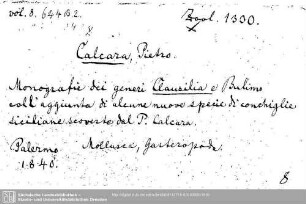 vol. 8. 644 B 2.
Zool. 1330.
8
Calcara, Pietro.
Monografie dei generi Clausilia e Bulimo
coll'aggiunta di alcune nuove specie di conchiglie
siciliane scoverte dal P. Calcara.
Palermo Mollusca, Gasteropoda.
1840.
8
Sächsische Landesbibliothek -
Staats- und Universitätsbibliothek Dresden